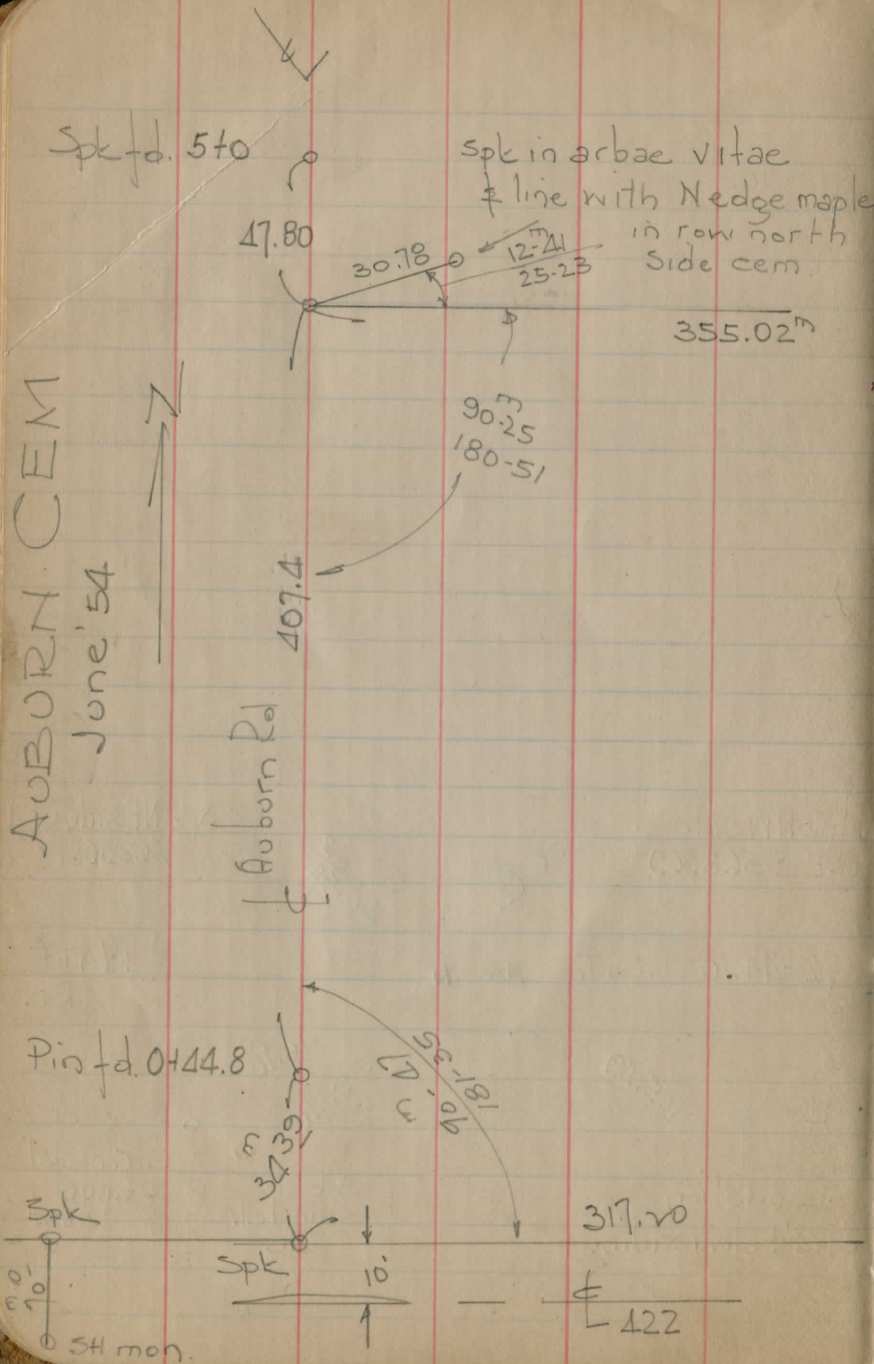 Spk fd. 5+0
47.80
Spk in arbae vitae
⅊ line with N edge maple
in row north
side cem.
30.78
m
12-41
25-23
355.02m
m
90-25
180-51
AUBURN CEM
June '54
N
407.4
℄ Auburn Rd
Pin fd. 0+44.8
m
90-47
181-35
m
34.39
Spk
Spk
317.20
10'
℄
422
SH mon.